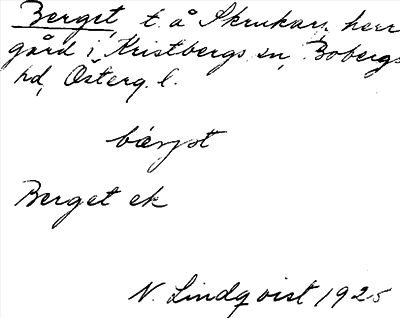 Berget, t. å Skrukarp herr
gård i Kristbergs sn, Bobergs
hd, Österg. l.
bærjət
Berget ek
N. Lindqvist 1925